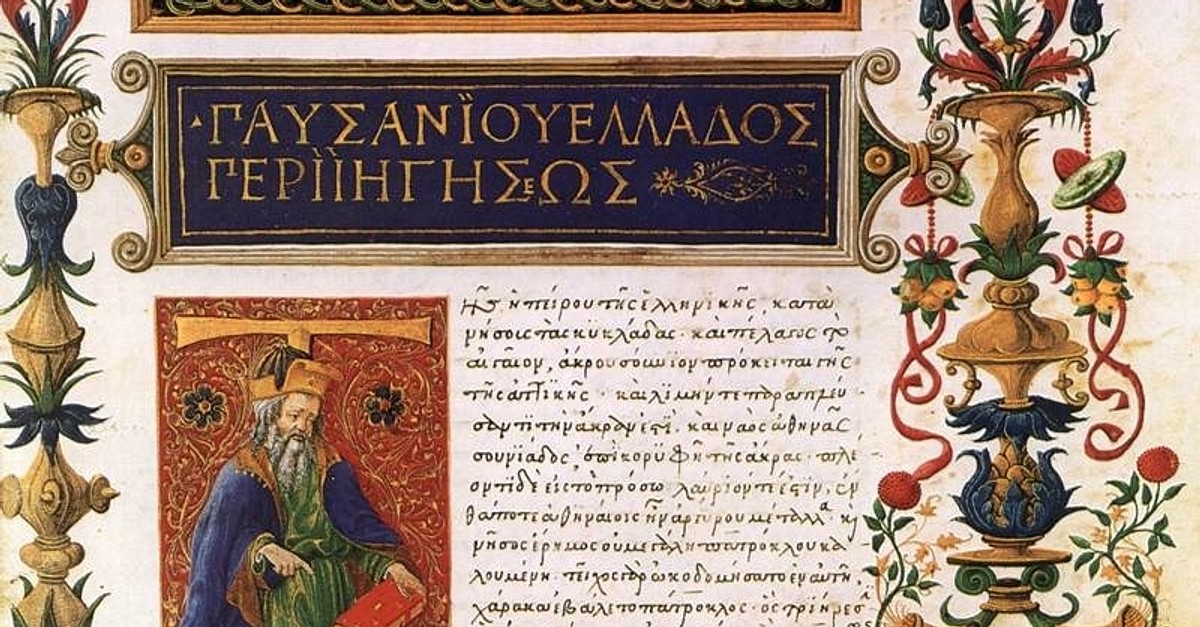 ΠΑΥΣΑΝΪΟΥ ΕΛΛΑΔΟΣ
ΠΕΡΙΪΗΓΗΣΕΩΣ
τῆς ἠπείρου τῆς ἑλληνικῆς, κατὰ
νήσους τὰς κυκλάδας· καὶ πέλαγος τὸ
αἰγαῖον, ἄκρον σούνιον πρόκειται γῆς
τῆς ἀττικῆς· καὶ λιμήν τε παραπλεύ
σαντι τὴν ἄκραν ἐστί, καὶ ναὸς ἀθηνᾶς
σουνιάδος, ἐπὶ κορυφῇ τῆς ἄκρας· πλέ
οντι δὲ εἰς τὸ πρόσω λαύριόν τέ ἐστιν, ἔν
θα ποτὲ ἀθηναίοις ἦν ἀργύρου μέταλλα· καὶ
νῆσος ἔρημος οὐ μεγάλη πατρόκλου κα
λουμένη· τεῖχος ᾠκοδομήσατο ἐν αὐτῇ,
χάρακα ἐβάλετο πάτροκλος· ὃς τριήρεσ